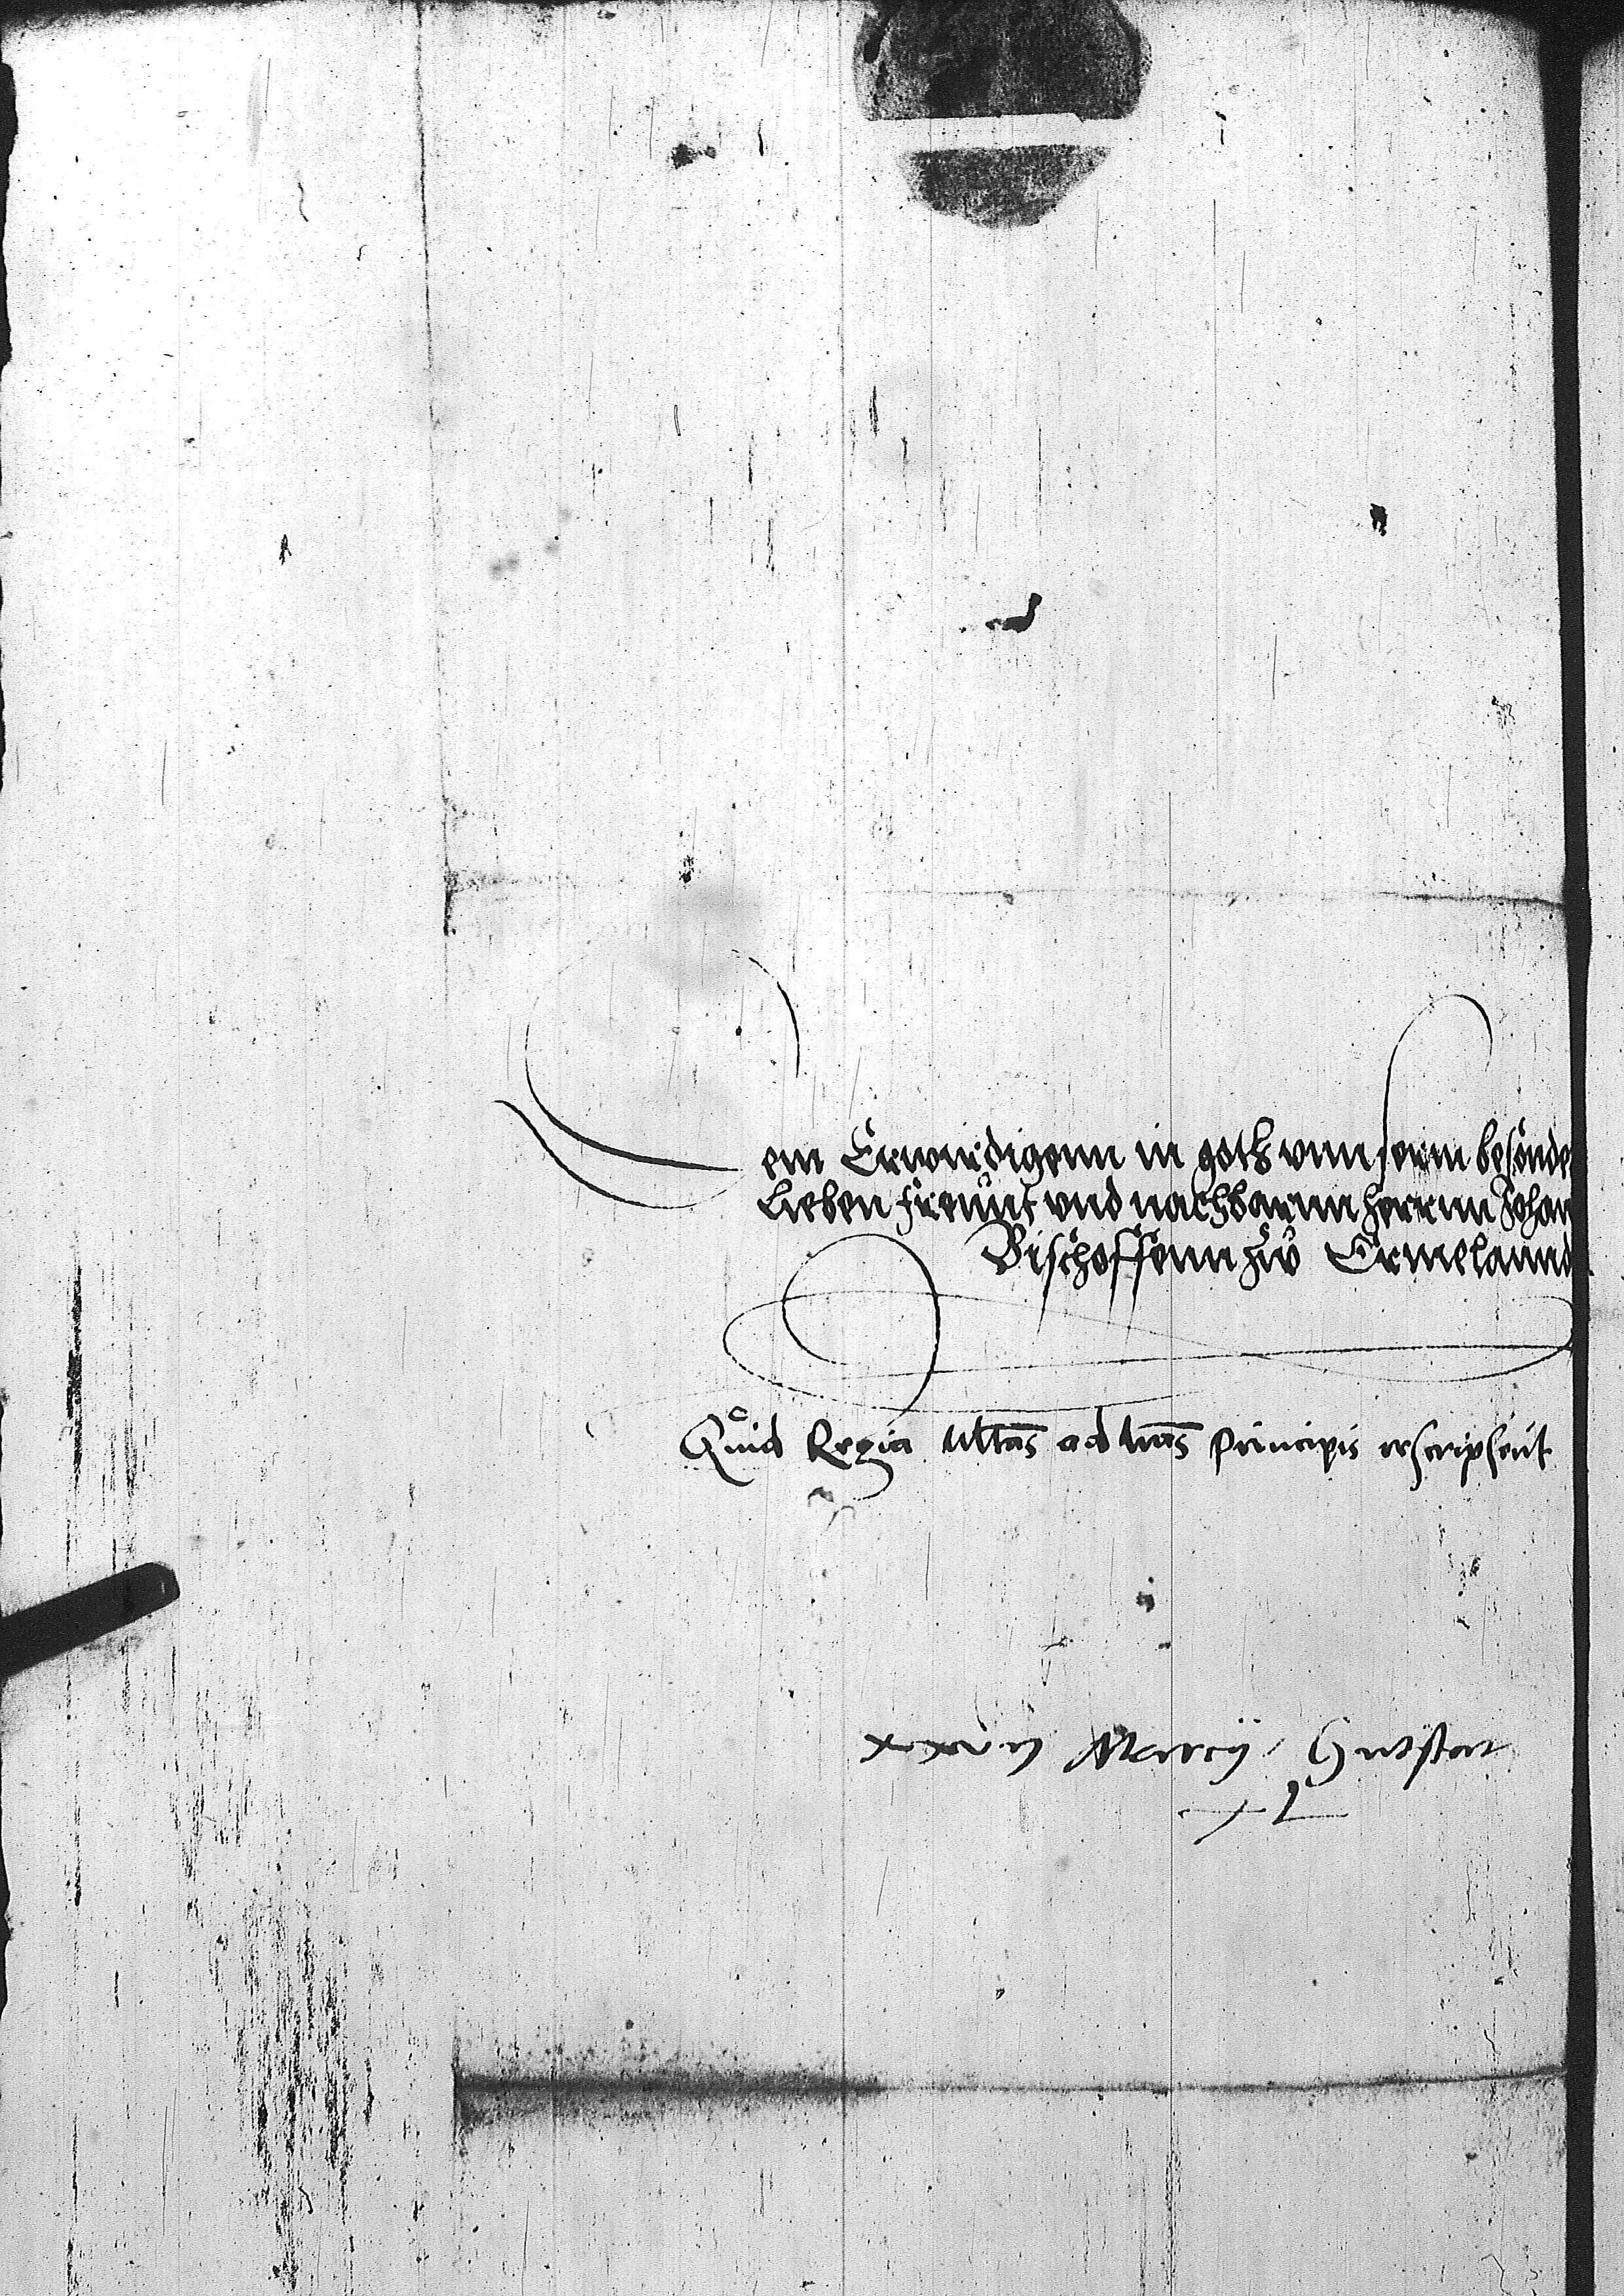 Dem Erwirdigenn in goth vnnserm besonde
Lieben freunt vnd nachbarnn herrnn Johan
Bischoffenn zw Ermelannd
Quid Regia Mtas ad lras Principis rescripserit
xxvij Marcij
xL